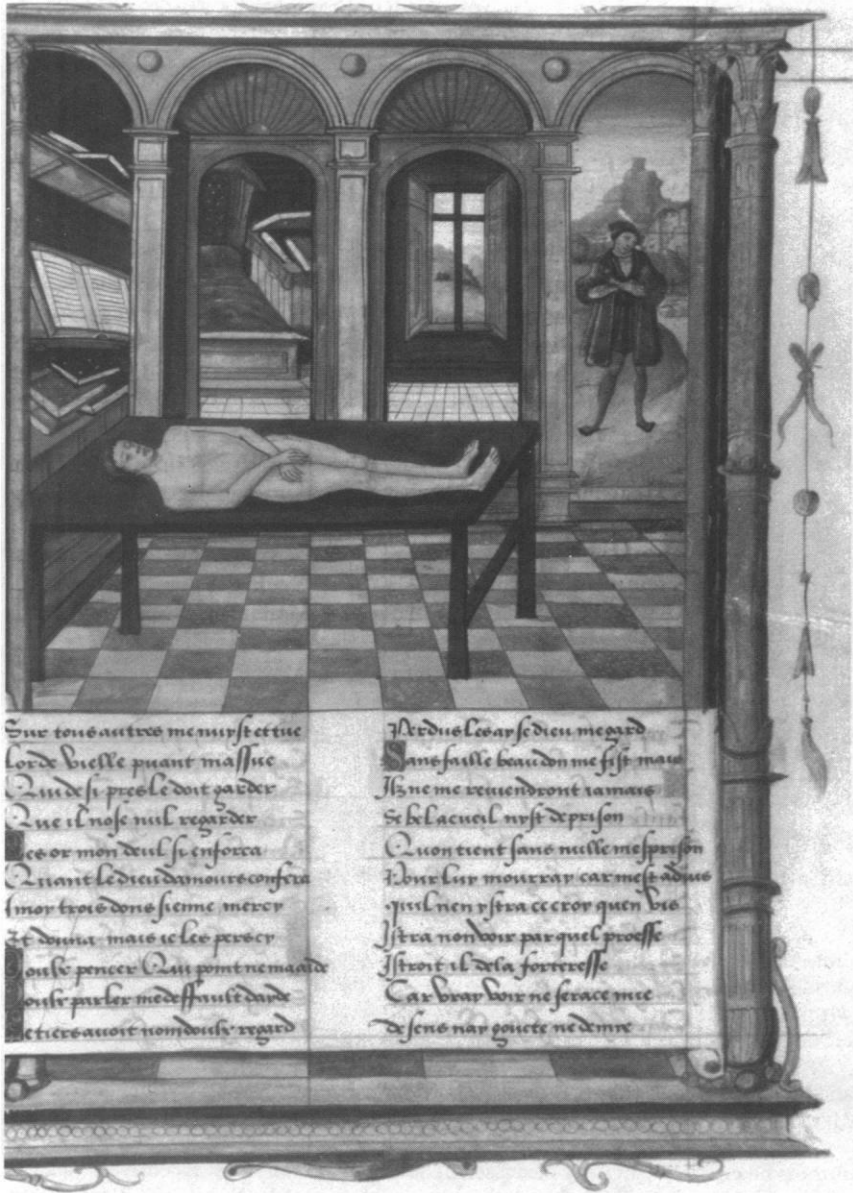 Sur tous autres me nuyst et tue
Lorde vielle puant massue
Qui de si pres le doit garder
Que il nose nul regarder
Des or mon deul si enforca
Quant le dieu damours confera
A moy trois dons sienne mercy
Et donna mais ie les pers cy
Doulx pencer Qui point ne maide
Doulx parler me deffault darde
Le tiers avoit nom doulx regard
Perdus les ay se dieu me gard
Sans faille beau don me fist mais
Ilz ne me reviendront iamais
Se bel acueil nyst de prison
Quon tient sans nulle mesprison
Pour luy mourray car mest advis
quil nen ystra ce croy quen vis
Istra non voir par quel proesse
Istroit il de la forteresse
Car vray voir ne sera ce mie
de sens nay goucte ne demie